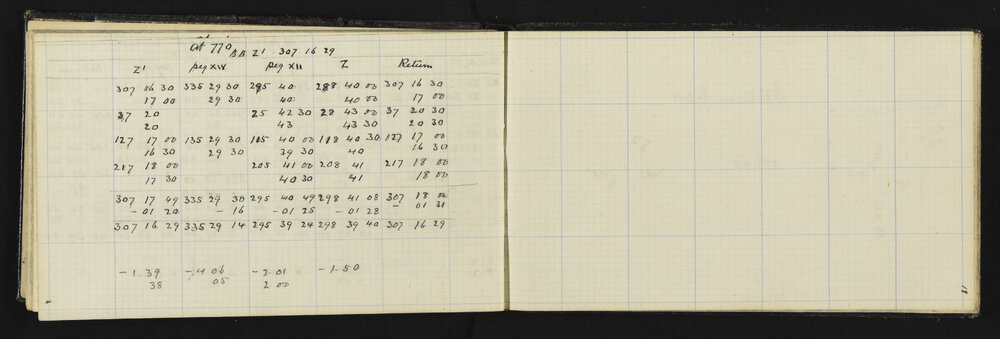 at 770 BB Z' 307 16 29
Z' peg XIV peg XII Z Return
307 16 30 335 29 30 295 40 288 40 00 307 16 30
17 00 29 30 40 40 00 17 00
37 20 25 42 30 28 43 00 37 20 30
20 43 43 30 20 30
127 17 00 135 29 30 105 40 00 118 40 30 127 17 00
16 30 29 30 39 30 40 16 30
217 18 00 205 41 00 208 41 217 18 00
17 30 40 30 41 18 00
307 17 49 335 29 30 295 40 49 298 41 08 307 18 00
- 01 20 - 16 - 01 25 - 01 28 - 01 31
307 16 29 335 29 14 295 39 24 298 39 40 307 16 29
- 1 39 - 4 06 - 2 01 - 1 50
38 05 2 00